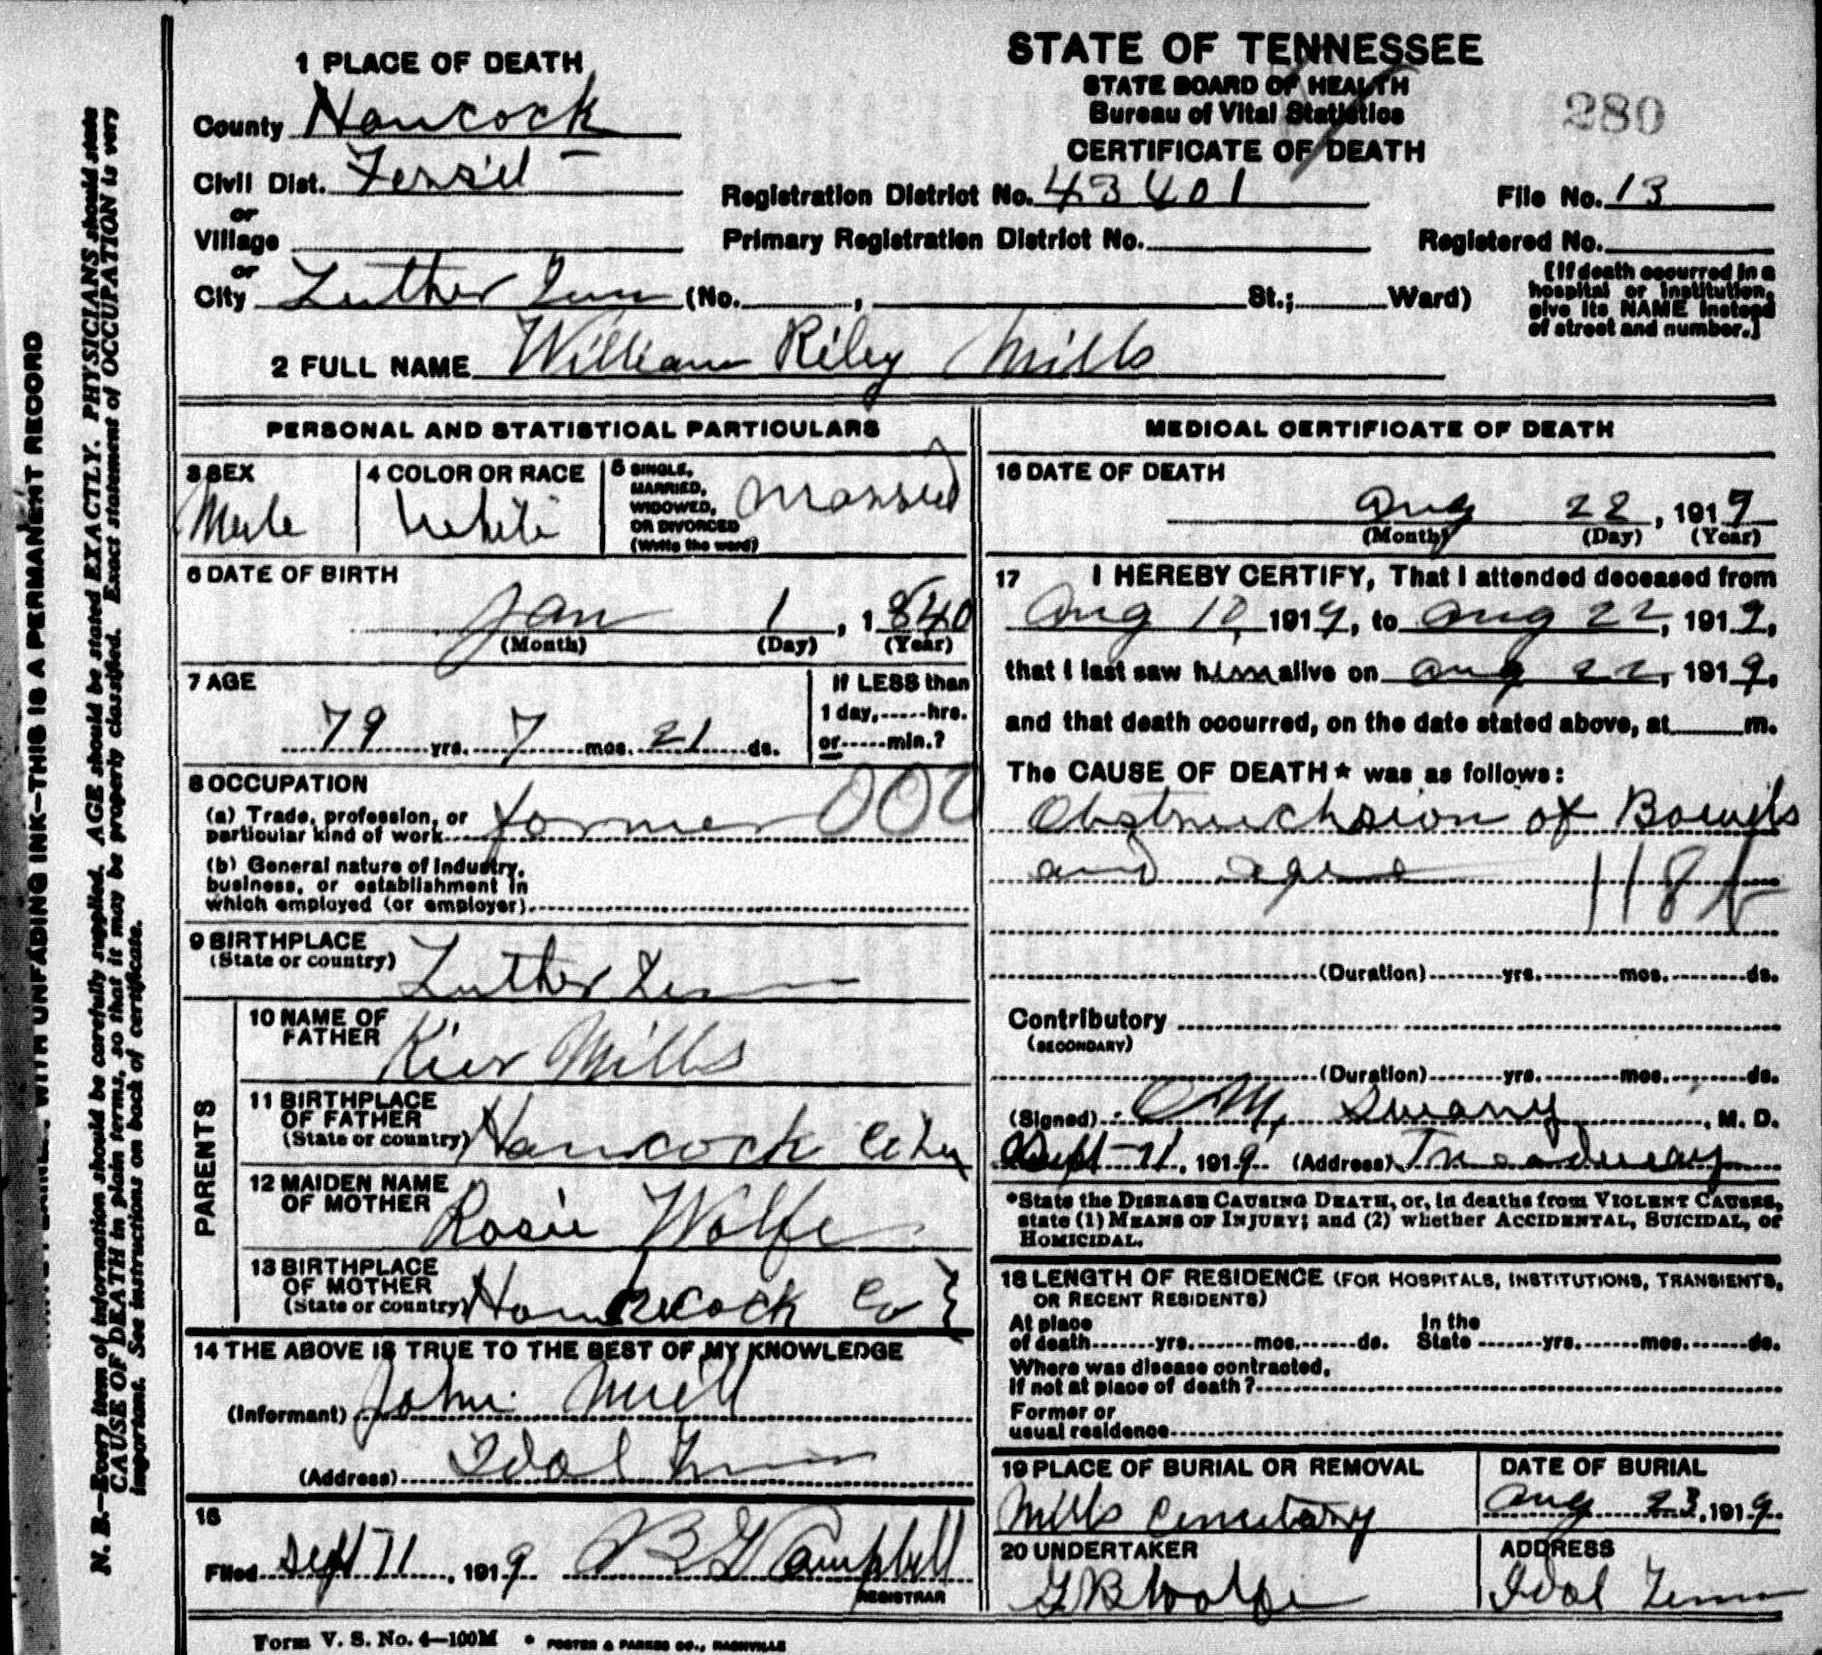 WITH UNFADING INK—THIS IS A PERMANENT RECORD
N. B.—Every item of information should be carefully supplied. AGE should be stated EXACTLY. PHYSICIANS should state
CAUSE OF DEATH in plain terms, so that it may be properly classified. Exact statement of OCCUPATION is very
important. See instructions on back of certificate.
1 PLACE OF DEATH
County Hancock
Civil Dist.
or
Village
or
City Luther Tenn (No. , St.; Ward)
STATE OF TENNESSEE
STATE BOARD OF HEALTH
Bureau of Vital Statistics
CERTIFICATE OF DEATH
280
Registration District No. 43401
File No. 13
Primary Registration District No.
Registered No.
[If death occurred in a
hospital or institution,
give its NAME instead
of street and number.]
2 FULL NAME William Riley Mills
PERSONAL AND STATISTICAL PARTICULARS
3 SEX
Male
4 COLOR OR RACE
White
5 SINGLE,
MARRIED,
WIDOWED,
OR DIVORCED
(Write the word)
Married
6 DATE OF BIRTH
Jan 1, 1840
(Month) (Day) (Year)
7 AGE
79 yrs. 7 mos. 21 ds.
If LESS than
1 day, hrs.
or min.?
8 OCCUPATION
(a) Trade, profession, or
particular kind of work farmer 000
(b) General nature of industry,
business, or establishment in
which employed (or employer)
9 BIRTHPLACE
(State or country) Luther Tenn
PARENTS
10 NAME OF
FATHER Kier Mills
11 BIRTHPLACE
OF FATHER
(State or country) Hancock Co
12 MAIDEN NAME
OF MOTHER Rosie Wolfe
13 BIRTHPLACE
OF MOTHER
(State or country) Hancock Co
14 THE ABOVE IS TRUE TO THE BEST OF MY KNOWLEDGE
(Informant) John Mill
(Address) Idol Tenn
15
Filed Sept 11, 1919 B G Campbell
REGISTRAR
Form V. S. No. 4—100M • FOSTER & PARKES CO., NASHVILLE
MEDICAL CERTIFICATE OF DEATH
16 DATE OF DEATH
Aug 22, 1919
(Month) (Day) (Year)
17 I HEREBY CERTIFY, That I attended deceased from
Aug 10, 1919, to Aug 22, 1919,
that I last saw him alive on Aug 22, 1919,
and that death occurred, on the date stated above, at m.
The CAUSE OF DEATH* was as follows:
Obstruchsion of Bowels
and age 118
(Duration) yrs. mos. ds.
Contributory
(SECONDARY)
(Duration) yrs. mos. ds.
(Signed) Swany, M. D.
Sept 11, 1919 (Address) Treadway
*State the DISEASE CAUSING DEATH, or, in deaths from VIOLENT CAUSES,
state (1) MEANS OF INJURY; and (2) whether ACCIDENTAL, SUICIDAL, or
HOMICIDAL.
18 LENGTH OF RESIDENCE (FOR HOSPITALS, INSTITUTIONS, TRANSIENTS,
OR RECENT RESIDENTS)
At place
of death yrs. mos. ds.
In the
State yrs. mos. ds.
Where was disease contracted,
if not at place of death?
Former or
usual residence
19 PLACE OF BURIAL OR REMOVAL
Mills Cemetary
DATE OF BURIAL
Aug 23, 1919
20 UNDERTAKER
G B Wolfe
ADDRESS
Idol Tenn